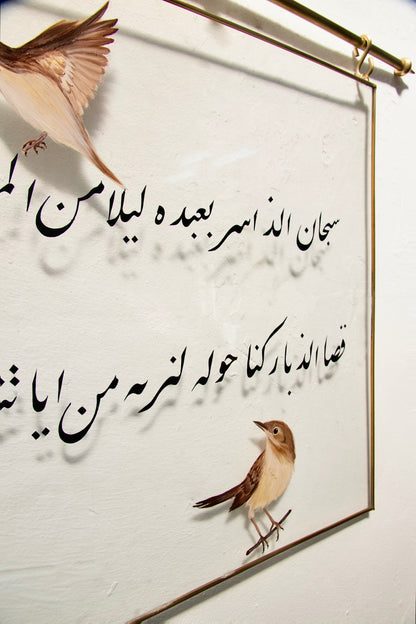 سبحان الذ اسر بعبده لیلا من الم
قصا الذ بارکنا حوله لنریه من ایا تنا